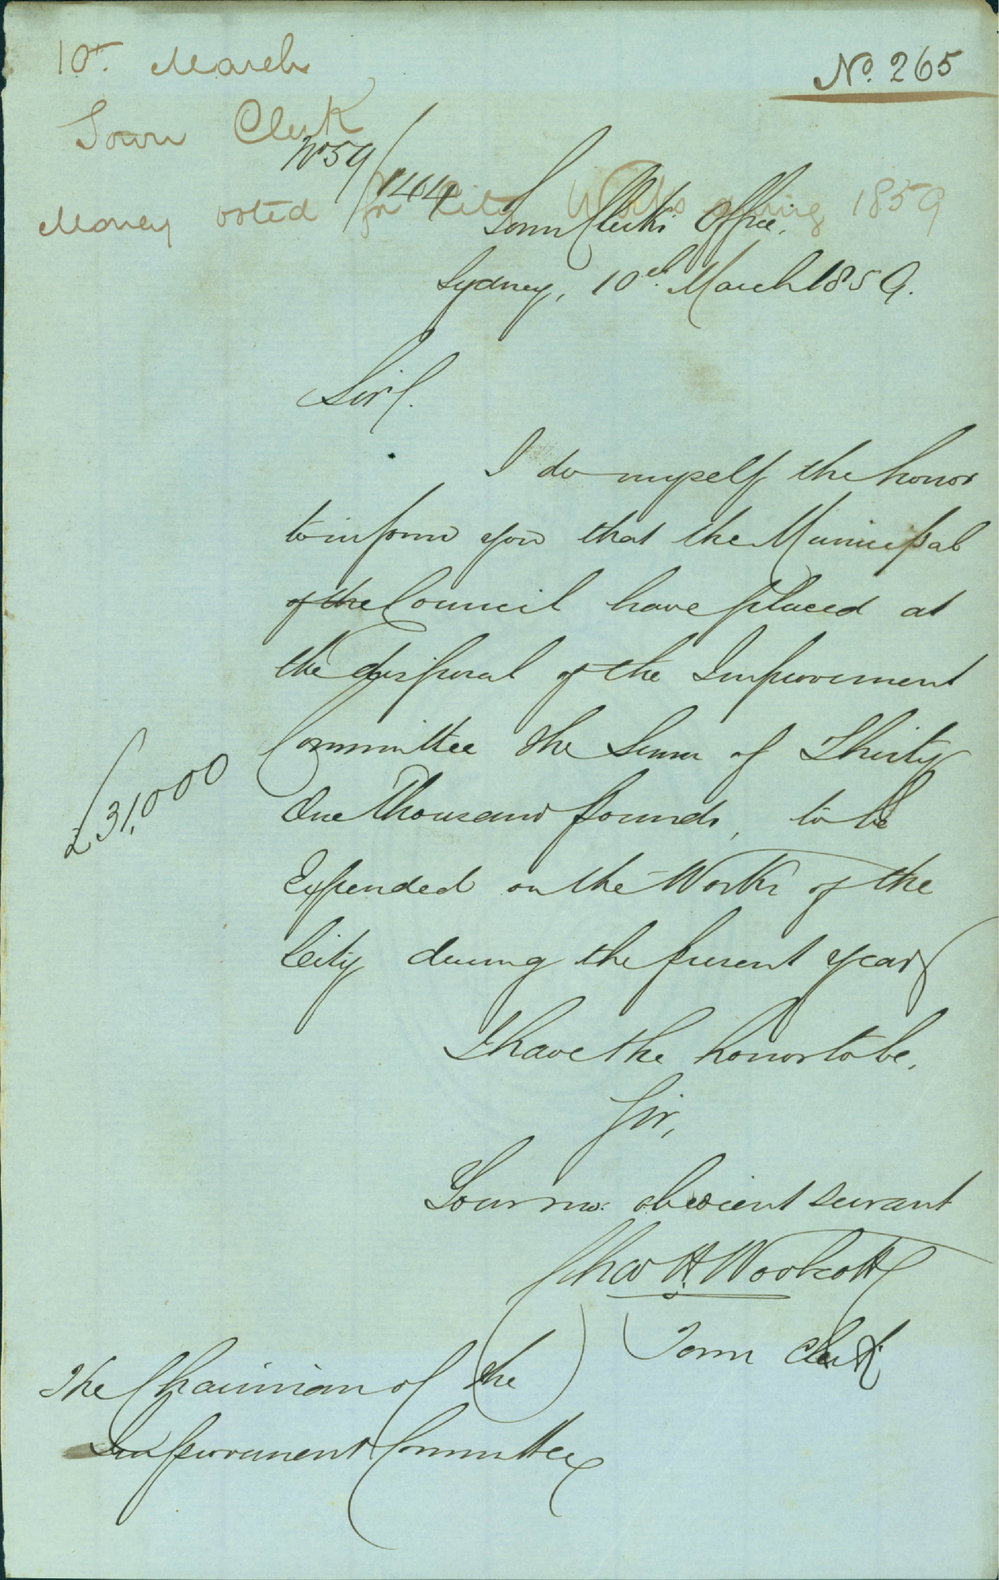 10th March
No. 265
Town Clerk
No 59/1404
Money voted for City Works during 1859
Town Clerk's Office,
Sydney, 10th March 1859.
Sir,
I do myself the honor
to inform you that the Municipal
of the Council have placed at
the disposal of the Improvement
Committee the Sum of Thirty
One Thousand pounds, to be
Expended on the Works of the
City during the present year
£31,000
I have the honor to be,
Sir,
Your mo: obedient servant
Chas H. Woolcott
Town Clerk
The Chairman of the
Improvement Committee